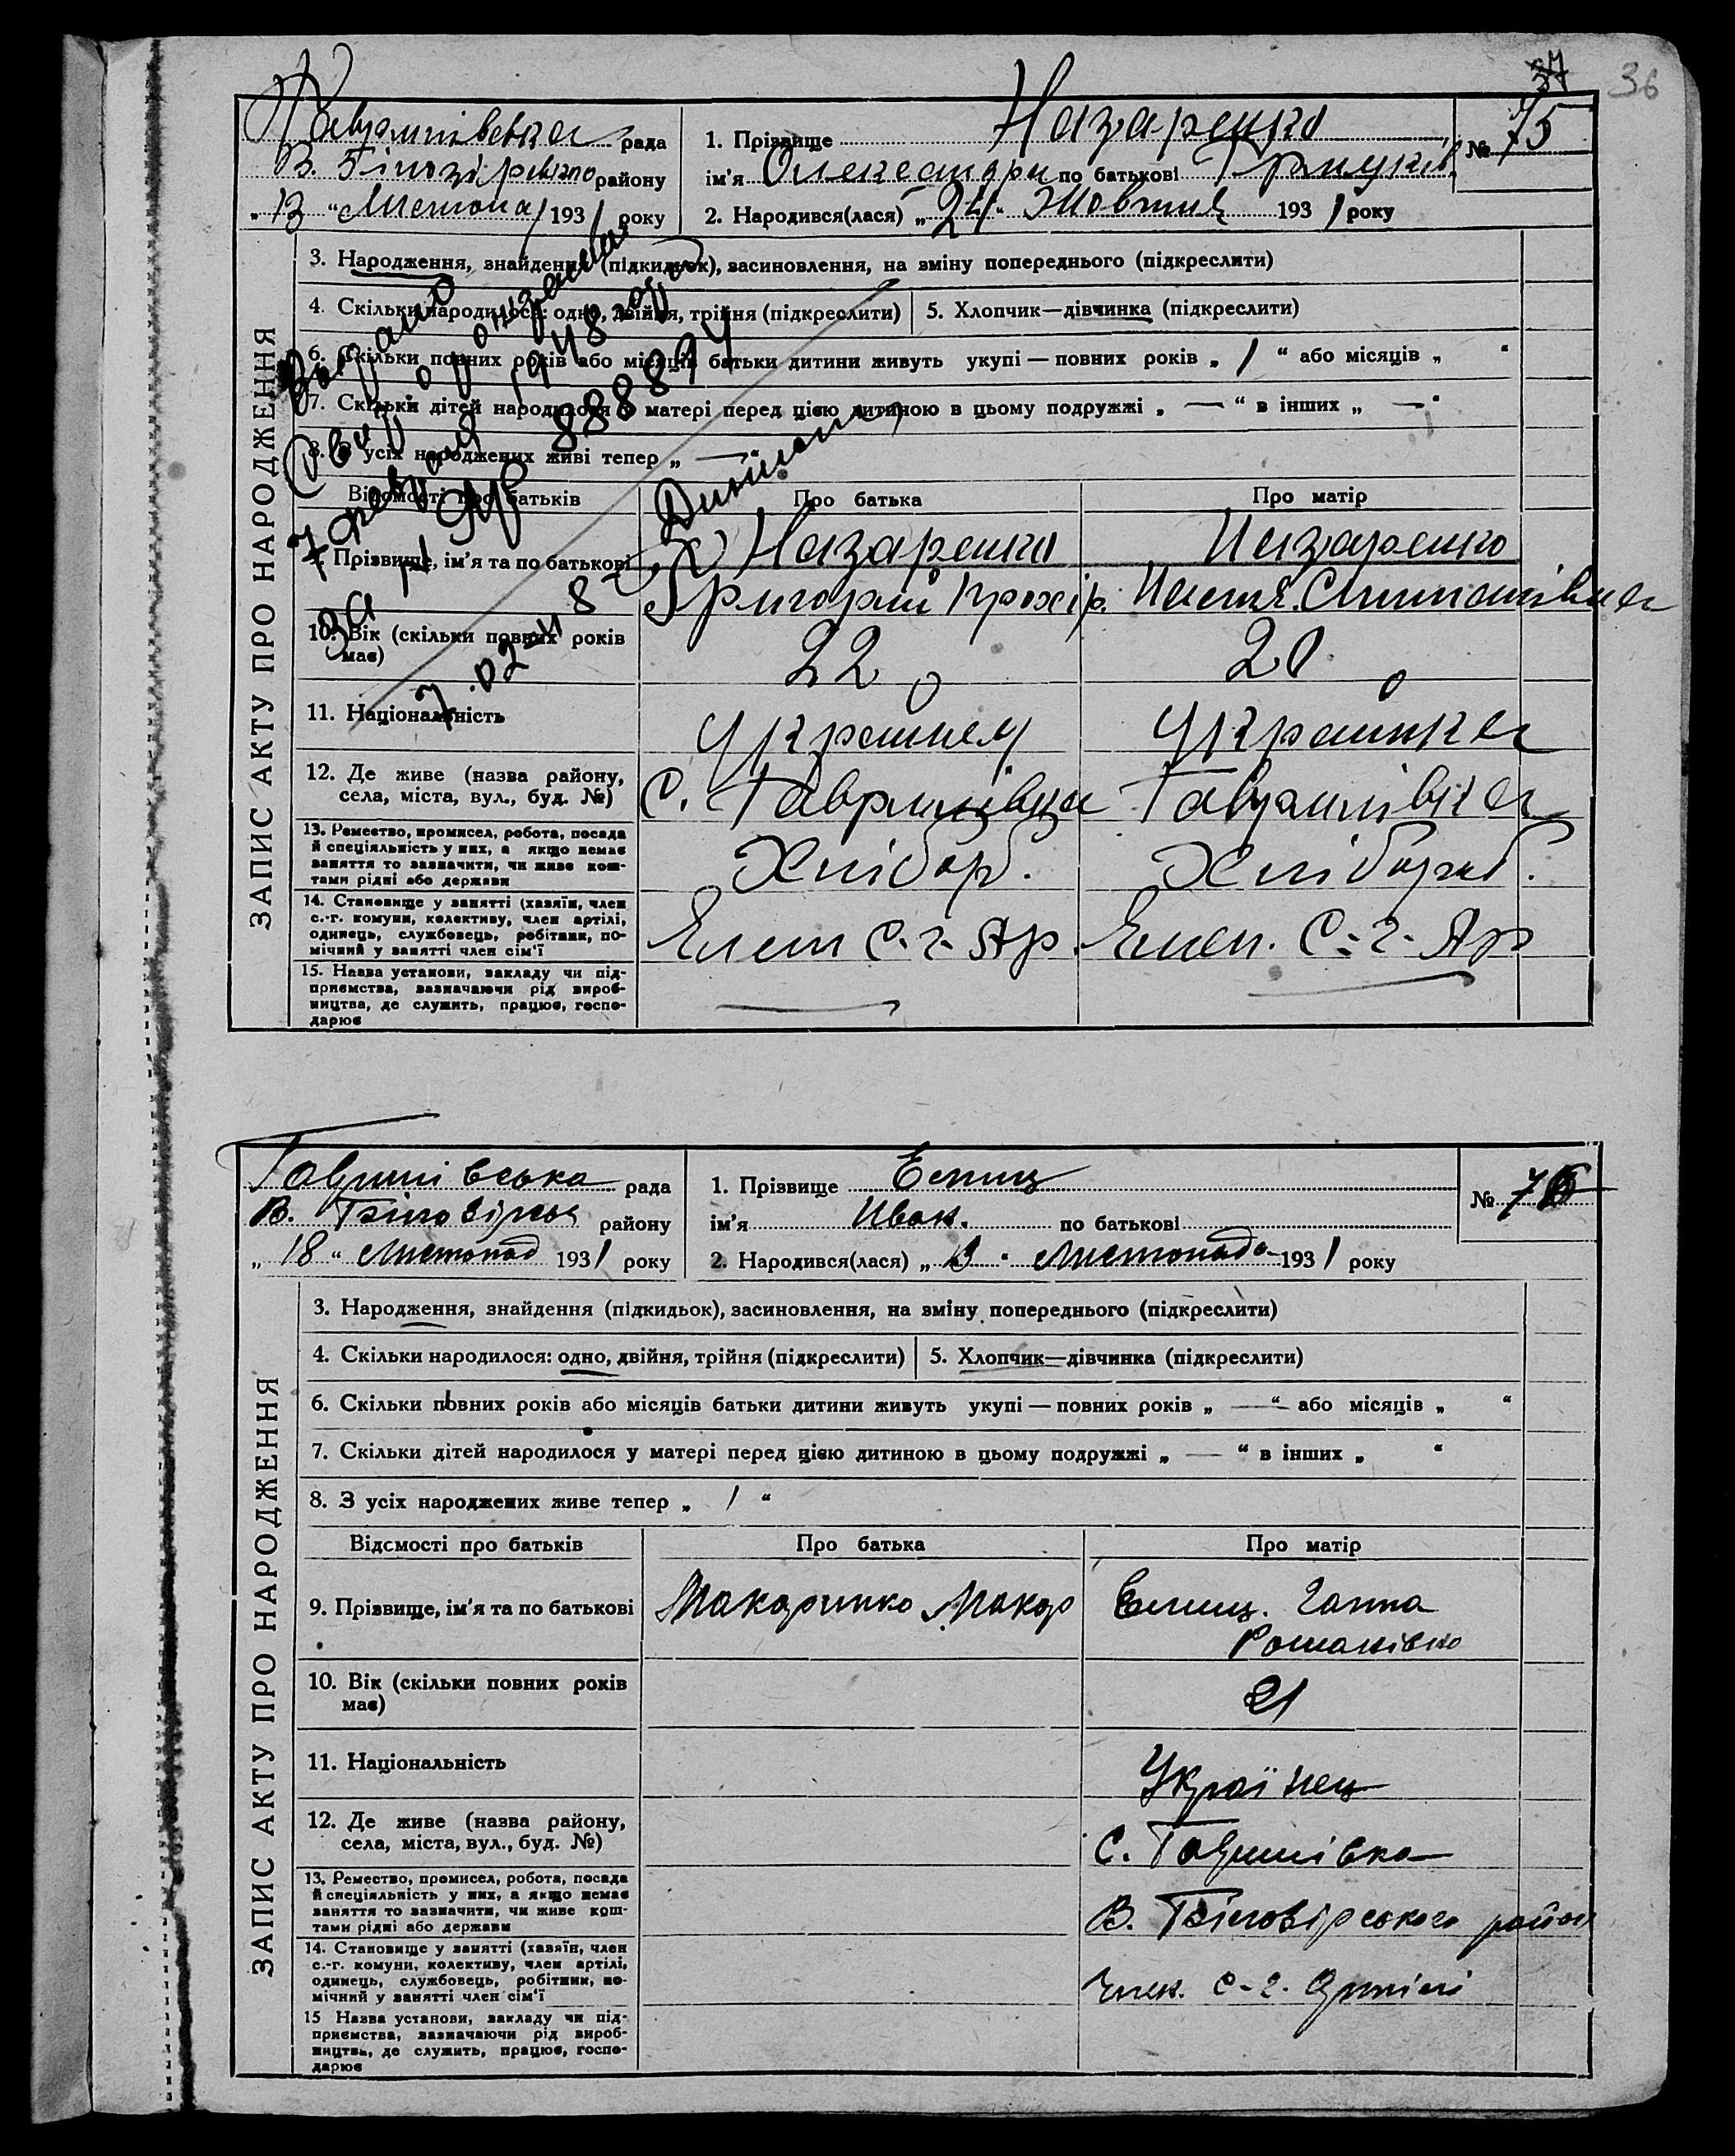 37 36
Гаврилівська рада
В. Білозірського району
„13“ Листопа 1931 року
1. Прізвище Назаренко
ім'я Олександра по батькові Григуків.
№ 75
2. Народився(лася) „24“ Жовтня 1931 року
ЗАПИС АКТУ ПРО НАРОДЖЕННЯ
3. Народження, знайдення (підкидьок), засиновлення, на зміну попереднього (підкреслити)
4. Скільки народилося: одно, двійня, трійня (підкреслити)
5. Хлопчик—дівчинка (підкреслити)
6. Скільки повних років або місяців батьки дитини живуть укупі — повних років „ 1 “ або місяців „ “
7. Скільки дітей народилося у матері перед цією дитиною в цьому подружжі „ — “ в інших „ — “
8. З усіх народжених живі тепер „ —
Видано
Свид. о
7 февраля 1948 года
за № ЯР 888894
7.02-48
Відомості про батьків
Про батька
Про матір
9. Прізвище, ім'я та по батькові
Назаренко
Григорий Прохір.
Назаренко
Настя.
10. Вік (скільки повних років має)
22
20
11. Національність
Українец
Українка
12. Де живе (назва району, села, міста, вул., буд. №)
С. Гаврилівка
Гаврилівка
13. Ремество, промисел, робота, посада й спеціяльність у них, а якщо немає заняття то зазначити, чи живе коштами рідні або держави
Хлібор.
Хлібороб.
14. Становище у занятті (хазяїн, член с.-г. комуни, колективу, член артілі, одинець, службовець, робітник, помічний у занятті член сім'ї
Член С-г- Яр.
Член. С-г- Яр
15. Назва установи, закладу чи підприємства, зазначаючи рід виробництва, де служить, працює, господарює
Гаврилівська рада
В. Білозірськ району
„18“ Листопад 1931 року
1. Прізвище Єлиц
ім'я Иван. по батькові
№ 76
2. Народився(лася) „13“ Листопада 1931 року
ЗАПИС АКТУ ПРО НАРОДЖЕННЯ
3. Народження, знайдення (підкидьок), засиновлення, на зміну попереднього (підкреслити)
4. Скільки народилося: одно, двійня, трійня (підкреслити)
5. Хлопчик—дівчинка (підкреслити)
6. Скільки повних років або місяців батьки дитини живуть укупі — повних років „ — “ або місяців „ “
7. Скільки дітей народилося у матері перед цією дитиною в цьому подружжі „ — “ в інших „ “
8. З усіх народжених живе тепер „ 1 “
Відомості про батьків
Про батька
Про матір
9. Прізвище, ім'я та по батькові
Макаринко Макар
Єлиц. Ганна
Романівна
10. Вік (скільки повних років має)
21
11. Національність
Українец
12. Де живе (назва району, села, міста, вул., буд. №)
С. Гаврилівка
13. Ремество, промисел, робота, посада й спеціяльність у них, а якщо немає заняття то зазначити, чи живе коштами рідні або держави
В. Білозірського район
14. Становище у занятті (хазяїн, член с.-г. комуни, колективу, член артілі, одинець, службовець, робітник, помічний у занятті член сім'ї
Член. С-г. Артілі
15 Назва установи, закладу чи підприємства, зазначаючи рід виробництва, де служить, працює, господарює